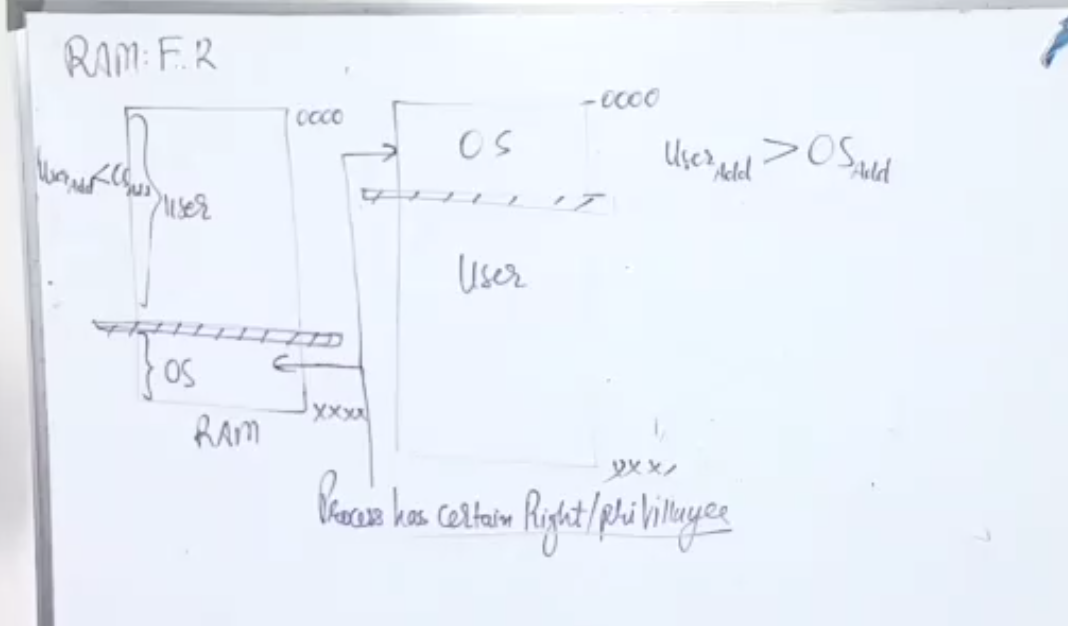 RAM: F.R
0000
User Add < OS Add
User
OS
xxxx
RAM
0000
OS
User
xxx
User Add > OS Add
Process has certain Right/privillagee